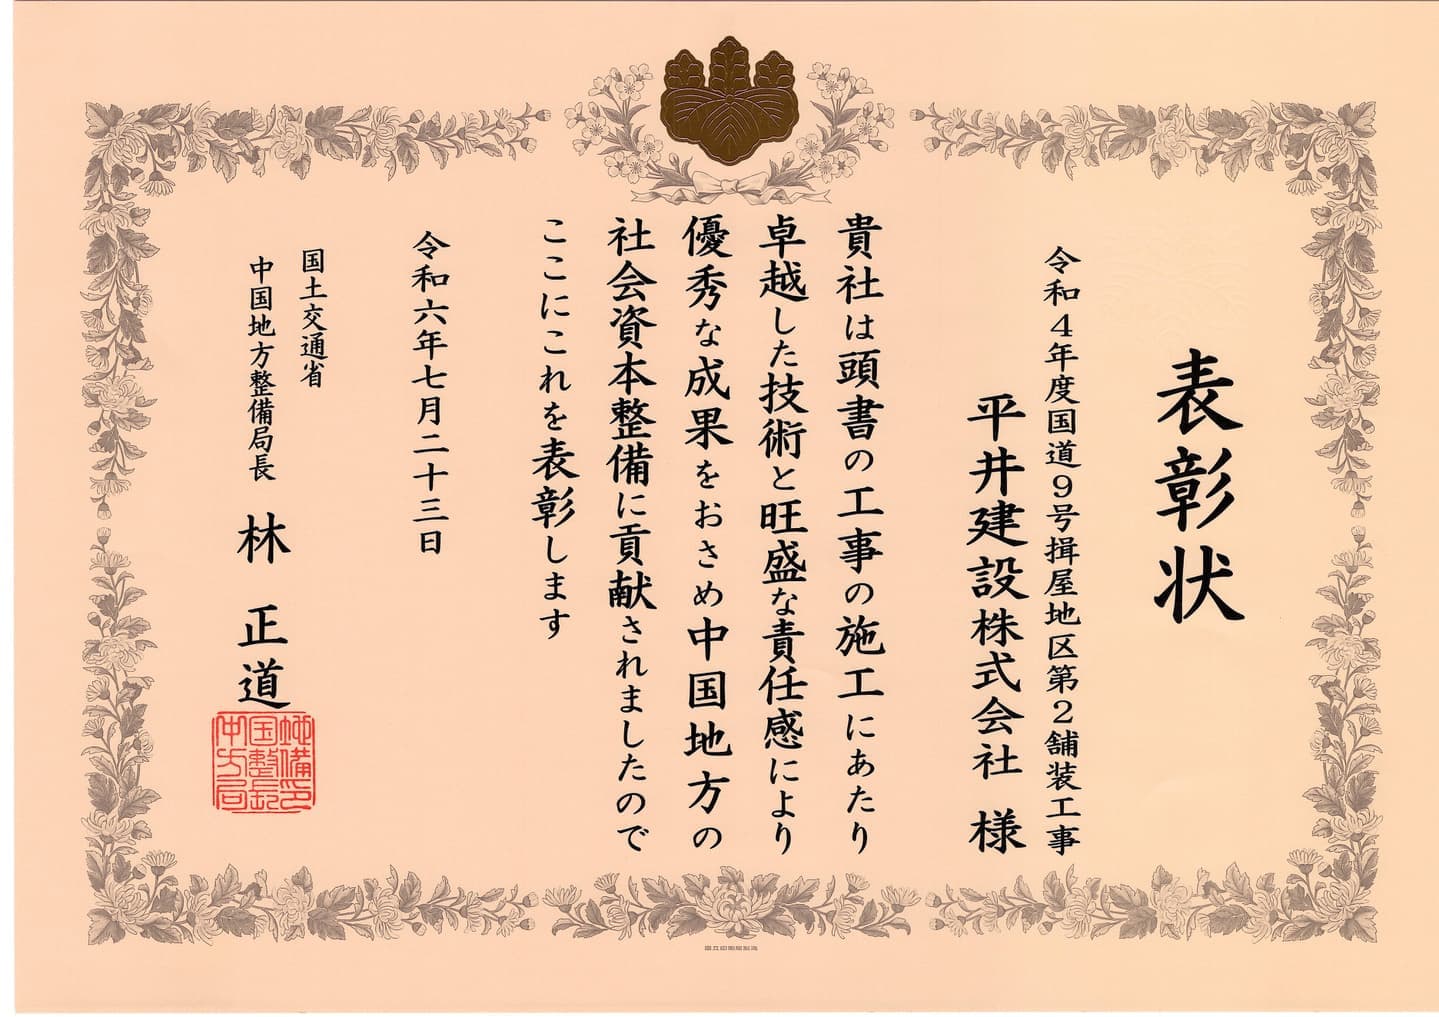 表彰状
令和４年度国道９号揖屋地区第２舗装工事
平井建設株式会社 様
貴社は頭書の工事の施工にあたり
卓越した技術と旺盛な責任感により
優秀な成果をおさめ中国地方の
社会資本整備に貢献されましたので
ここにこれを表彰します
令和六年七月二十三日
国土交通省
中国地方整備局長 林 正道
国立印刷局製造